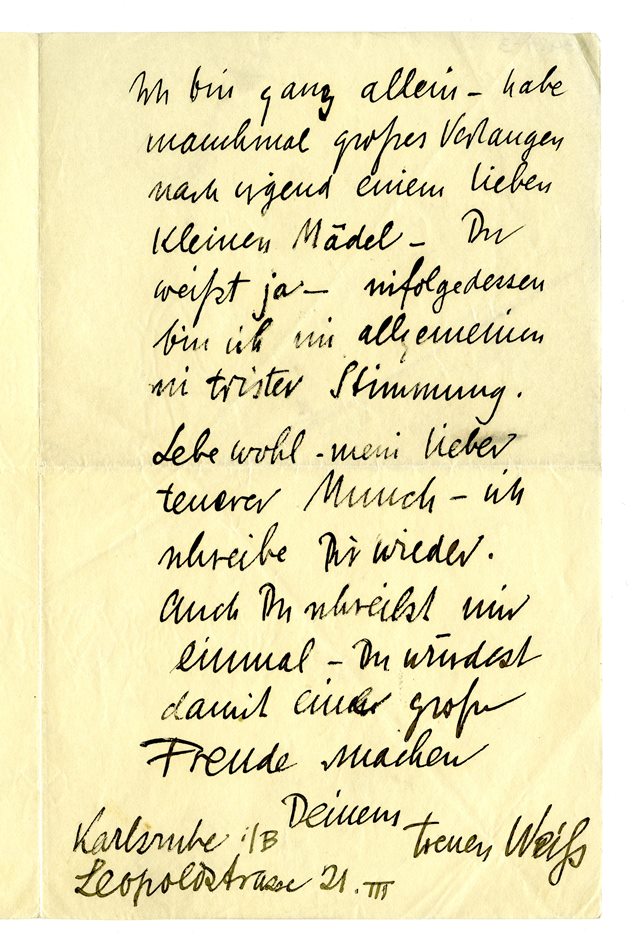 Ich bin ganz allein – habe
manchmal großes Verlangen
nach irgend einem lieben
kleinen Mädel – Du
weißt ja – infolgedessen
bin ich im allgemeinen
in trister Stimmung.
Lebe wohl – mein lieber
teurer Munch – ich
schreibe Dir wieder.
Auch Du schreibst mir
einmal – Du würdest
damit eine große
Freude machen
Deinem
treuen Weiß
Karlsruhe i/B
Leopoldstrasse 21. III